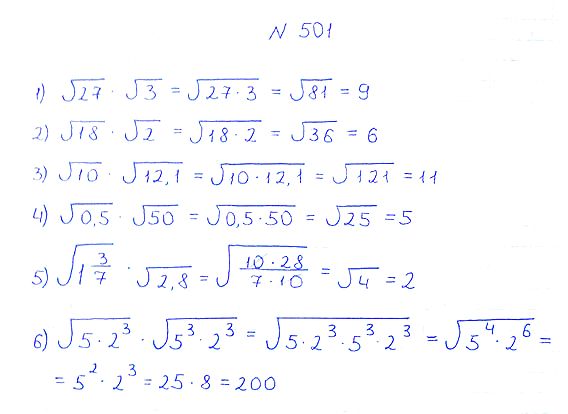 N 501
1) √27 · √3 = √(27·3) = √81 = 9
2) √18 · √2 = √(18·2) = √36 = 6
3) √10 · √12,1 = √(10·12,1) = √121 = 11
4) √0,5 · √50 = √(0,5·50) = √25 = 5
5) √(1 3/7) · √2,8 = √((10·28)/(7·10)) = √4 = 2
6) √(5·2³) · √(5³·2³) = √(5·2³·5³·2³) = √(5⁴·2⁶) =
= 5²·2³ = 25·8 = 200